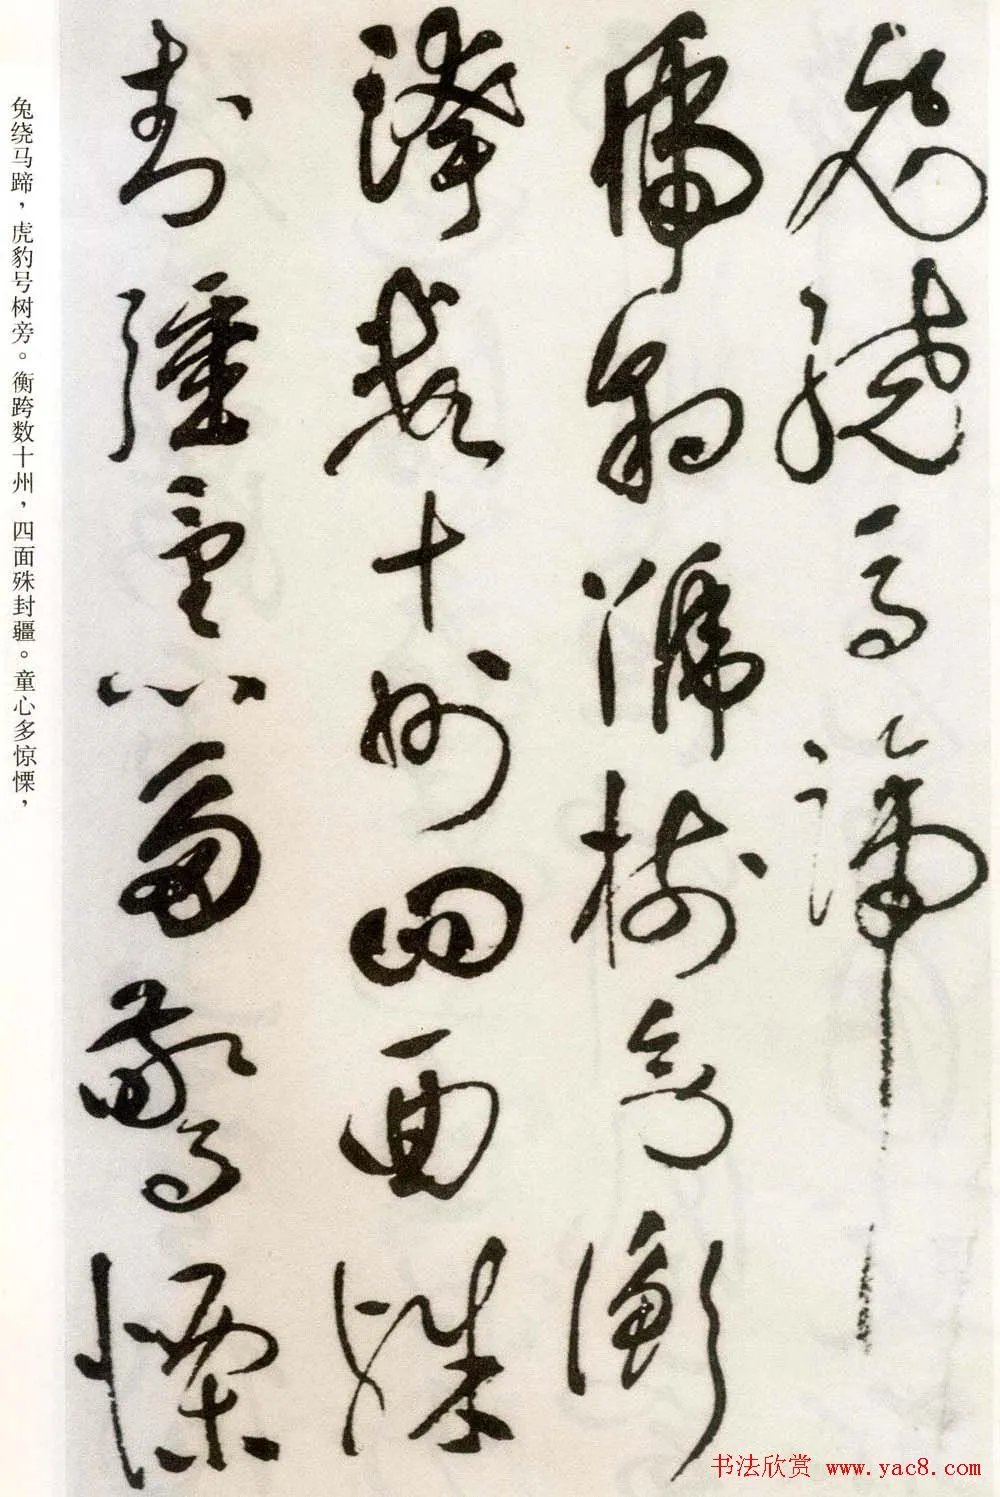 兔繞馬蹄
虎豹號樹旁衡
跨數十州四面殊
封疆童心多驚慄
兔绕马蹄，虎豹号树旁。衡跨数十州，四面殊封疆。童心多惊慄，
书法欣赏 www.yac8.com